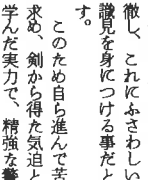 徹し、これにふさわしい
識見を身につける事だと
す。
このため自ら進んで苦
求め、剣から得た気迫と
学んだ実力で、精強な警